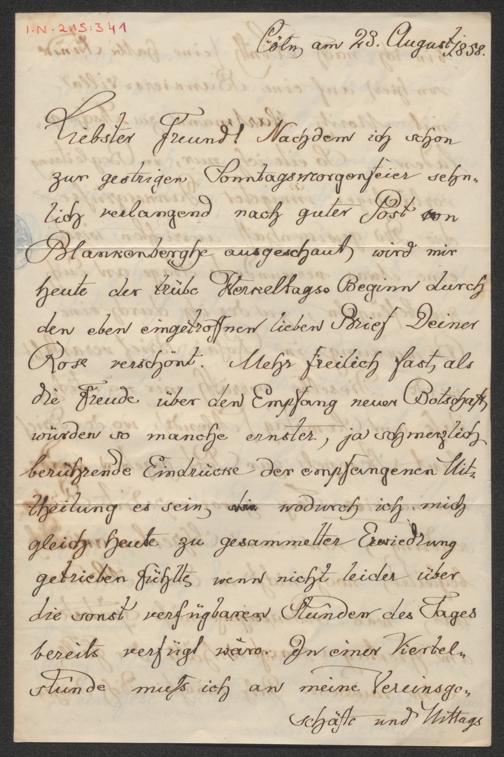 I.N. 215.341
Cöln, am 23. August 1858.
Liebster Freund! Nachdem ich schon
zur gestrigen Sonntagsmorgenfeier sehn-
lich verlangend nach guter Post von
Blankenberghe ausgeschaut, wird mir
heute der trübe Werkeltags-Beginn durch
den eben eingetroffnen lieben Brief Deiner
Rosa verschönt. Mehr freilich fast, als
die Freude über den Empfang neuer Botschaft,
würden so manche ernster, ja schmerzlich
berührende Eindrücke der empfangenen Mit-
theilung es sein, wodurch ich mich
gleich heute zu gesammelter Erwiedrung
getrieben fühlte, wenn nicht leider über
die sonst verfügbaren Stunden des Tages
bereits verfügt wäre. In einer Viertel-
stunde muß ich an meine Vereinsge-
schäfte und Mittags